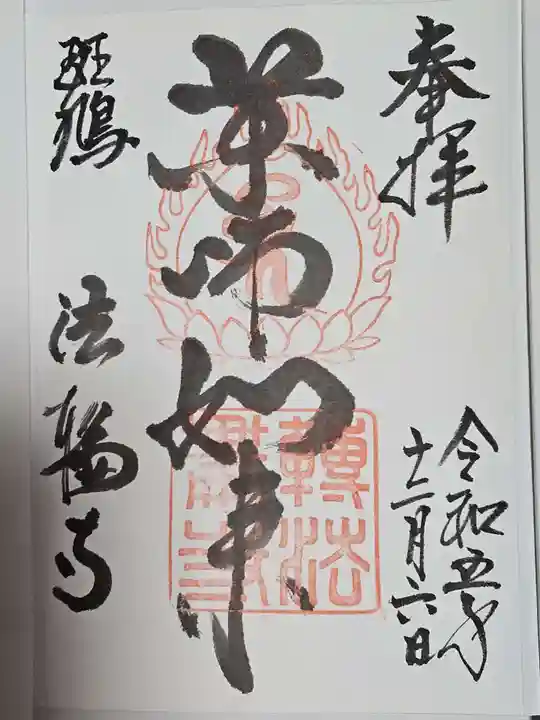 奉拝
令和五年
十二月六日
薬師如来
斑鳩
法輪寺